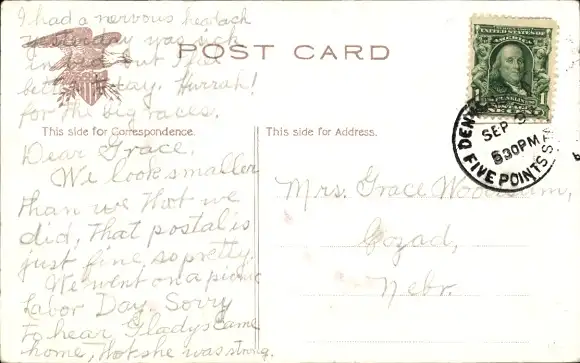 I had a nervous headach
yesterday was sick
in bed but feel
better today. Hurrah!
for the big races.
POST CARD
This side for Correspondence.
This side for Address.
Dear Grace.
We look smaller
than we thot we
did, that postal is
just fine, so pretty.
We went on a picnic
Labor Day. Sorry
to hear Gladys came
home, thot she was strong.
Mrs. Grace
Cozad,
Nebr.
DENVER
SEP 3
630PM
FIVE POINTS STA
OF AMERICA
FRANKLIN
1 1